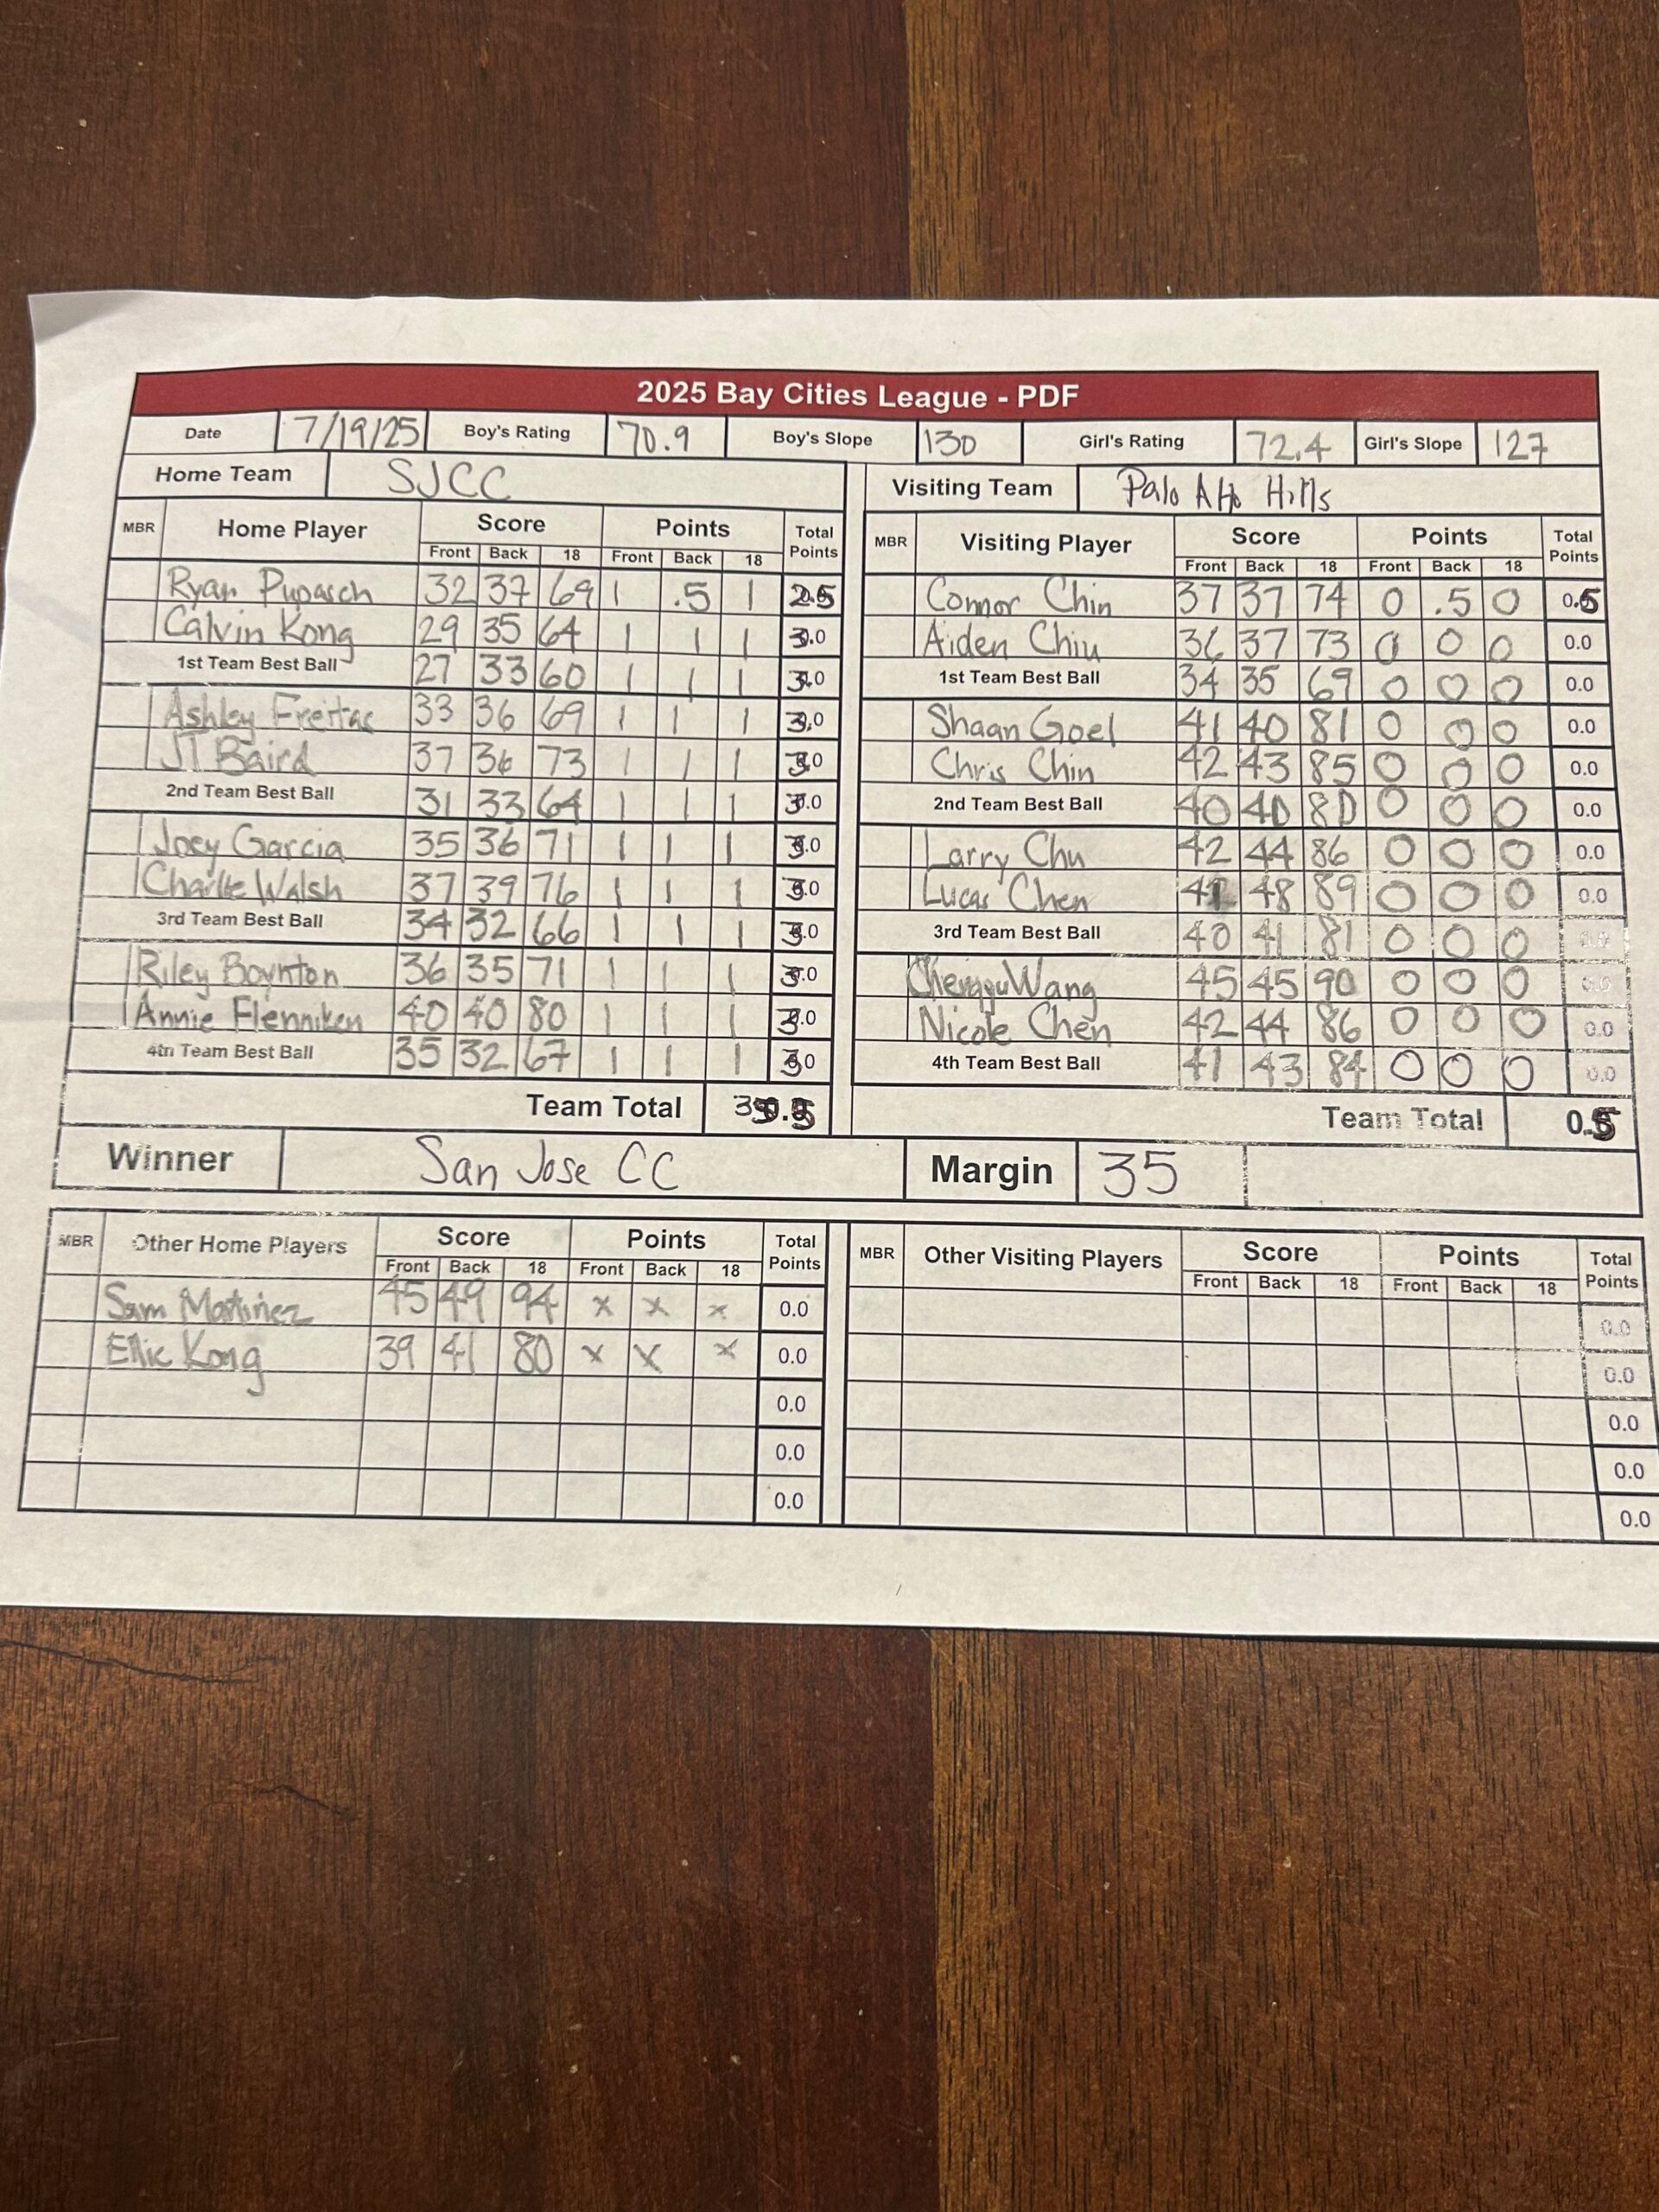 2025 Bay Cities League - PDF
Date 7/19/25 Boy's Rating 70.9 Boy's Slope 130 Girl's Rating 72.4 Girl's Slope 127
Home Team SJCC Visiting Team Palo Alto Hills
MBR Home Player Score Points Total Points MBR Visiting Player Score Points Total Points
Front Back 18 Front Back 18 Front Back 18 Front Back 18
Ryan Pupasch 32 37 69 1 .5 1 2.5 Connor Chin 37 37 74 0 .5 0 0.5
Calvin Kong 29 35 64 1 1 1 3.0 Aiden Chiu 36 37 73 0 0 0 0.0
1st Team Best Ball 27 33 60 1 1 1 3.0 1st Team Best Ball 34 35 69 0 0 0 0.0
Ashley Freitas 33 36 69 1 1 1 3.0 Shaan Goel 41 40 81 0 0 0 0.0
JT Baird 37 36 73 1 1 1 3.0 Chris Chin 42 43 85 0 0 0 0.0
2nd Team Best Ball 31 33 64 1 1 1 3.0 2nd Team Best Ball 40 40 80 0 0 0 0.0
Joey Garcia 35 36 71 1 1 1 3.0 Larry Chu 42 44 86 0 0 0 0.0
Charlie Walsh 37 39 76 1 1 1 3.0 Lucas Chen 41 48 89 0 0 0 0.0
3rd Team Best Ball 34 32 66 1 1 1 3.0 3rd Team Best Ball 40 41 81 0 0 0 0.0
Riley Boynton 36 35 71 1 1 1 3.0 Wang 45 45 90 0 0 0 0.0
Annie Flenniken 40 40 80 1 1 1 3.0 Nicole Chen 42 44 86 0 0 0 0.0
4th Team Best Ball 35 32 67 1 1 1 3.0 4th Team Best Ball 41 43 84 0 0 0 0.0
Team Total 35.5 Team Total 0.5
Winner San Jose CC Margin 35
MBR Other Home Players Score Points Total Points MBR Other Visiting Players Score Points Total Points
Front Back 18 Front Back 18 Front Back 18 Front Back 18
Sam Martinez 45 49 94 x x x 0.0 0.0
Ellie Kong 39 41 80 x x x 0.0 0.0
0.0 0.0
0.0 0.0
0.0 0.0